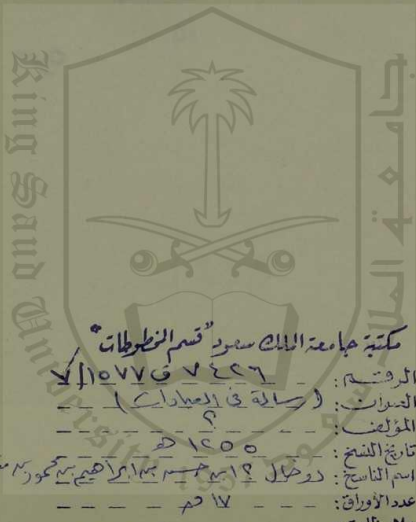 King Saud University
جامعة الملك سعود
1957
مكتبة جامعة الملك سعود "قسم المخطوطات"
الرقم: ٧٤٢٦ ف ١٥٧٧/٧
العنوان: (رسالة في العبادات)
المؤلف: ؟
تاريخ النسخ: ١٢٥٥ هـ
اسم الناسخ: ؟ ابن حسن بن ابراهيم بن محمود بن
عدد الأوراق: ١٧